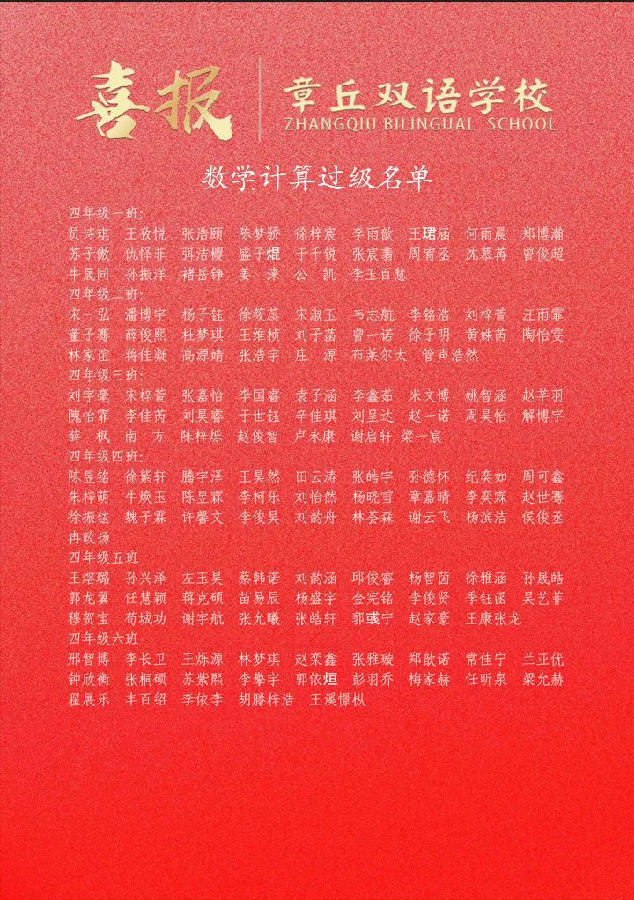 喜报 章丘双语学校
ZHANGQIU BILINGUAL SCHOOL
数学计算过级名单
四年级一班:
王孜悦 张浩颐 陈梦娇 徐梓宸 李雨歆 王珺涵 何雨晨 郑博瀚
苏子傲 仇怀非 弭洁樱 盛子焜 于千锐 张宸熏 周宥丞 沈慕苒 曾俊超
牛晟同 孙振洋 褚岳铮 姜涞 公凯 李玉百慧
四年级二班:
宋一弘 潘博宇 杨子钰 徐筱蕊 宋淑玉 韦志航 李铭浩 刘梓萱 汪雨霏
董子骞 薛俊熙 杜梦琪 王维桢 刘子菡 曾一诺 徐子玥 黄姝芮 陶怡雯
林家谊 蒋佳凝 高源婧 张浩宇 庄源 石莱尔太 管声浩然
四年级三班:
刘宇毫 宋梓萱 张嘉怡 李国睿 袁子涵 李鑫茹 米文博 姚智涵 赵芊羽
隗怡霏 李佳芮 刘昊睿 于世钰 辛佳琪 刘呈达 赵一诺 周昊怡 解博宇
薛枫 南方 陈梓烁 赵俊智 卢永康 谢启轩 梁一宸
四年级四班:
陈昱铭 徐紫轩 腾宇泽 王昊然 田云涛 张皓宇 孙德怀 纪奕如 周可鑫
朱梓萌 牛焕玉 陈昱霖 李柯乐 刘怡然 杨晓雪 章嘉晴 李奕霖 赵世骞
徐振铉 魏子霖 许馨文 李俊昊 刘韵舟 林荟森 谢云飞 杨滨洁 侯俊丞
冉畋扬
四年级五班
王熠璐 孙兴泽 左玉昊 蔡韩诺 刘韵涵 邱俊睿 杨智茵 徐雅涵 孙晟皓
郭龙翼 任慧颖 蒋克硕 苗易辰 杨盛宇 金宪铭 李俊贤 季钰函 吴艺菲
穆贺宝 荀城功 谢宇航 张允曦 张皓轩 郭彧宁 赵家豪 王康张龙
四年级六班
邢智博 李长卫 王烁源 林梦琪 赵栾鑫 张雅璇 郑歆诺 常佳宁 兰亚优
钟欣衡 张桐硕 苏紫熙 李擎宇 郭依烜 彭羽乔 梅家赫 任昕泉 梁允赫
翟展乐 丰百绍 李依李 胡滕梓浩 王溪憬枞